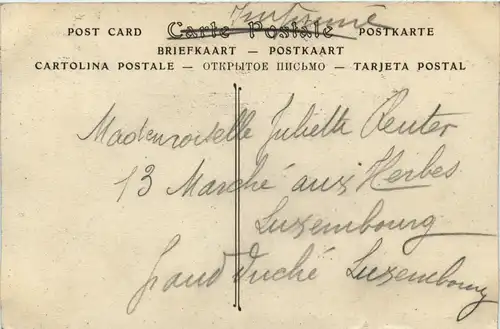 Imprimé
POST CARD Carte Postale POSTKARTE
BRIEFKAART — POSTKAART
CARTOLINA POSTALE — ОТКРЫТОЕ ПИСЬМО — TARJETA POSTAL
Mademoiselle Juliette Reuter
13 Marché aux Herbes
Luxembourg
Grand Duché Luxembourg